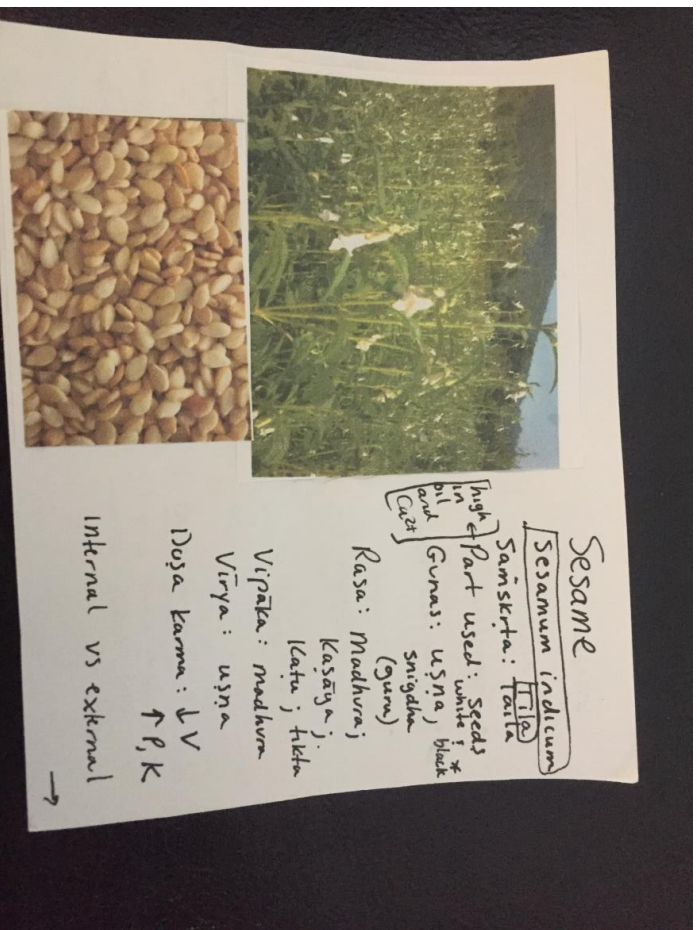 Sesame
Sesamum indicum
Saṁskṛta: Tila
Taila
Part used: seeds
white! black*
[high in oil and Ca²⁺]
Guṇas: uṣṇa,
snigdha
(guru)
Rasa: Madhura;
Kaṣāya;
Kaṭu; tikta
Vipāka: madhura
Vīrya: uṣṇa
Doṣa karma: ↓V
↑P, K
Internal vs external
→